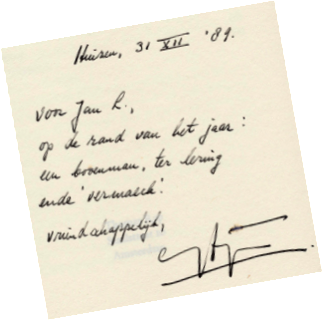 Huizen, 31 XII '89.
voor Jan L.,
op de rand van het jaar:
een bovenman, ter lering
ende 'vermaeck'.
vriendschappelijk,